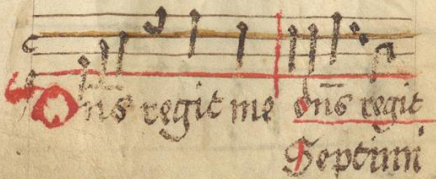 Dn̄s regit me dn̄s regit
Septimi